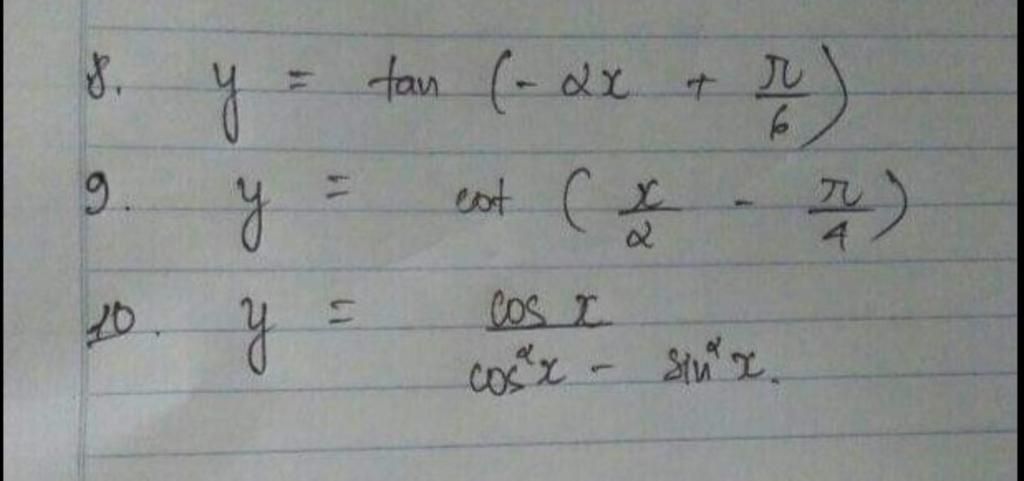 8. y = tan (- 2x + π/6)
9. y = cot (x/2 - π/4)
10. y = cos x / cos²x - sin²x.